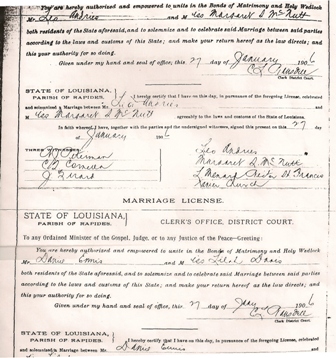 You are hereby authorized and empowered to unite in the Bonds of Matrimony and Holy Wedlock
Mr. Leo Andries and M iss Margaret D McNutt
both residents of the State aforesaid, and to solemnize and celebrate said Marriage between said parties
according to the laws and customs of this State; and make your return hereof as the law directs; and
this your authority for so doing.
Given under my hand and seal of office, this 27 day of January 1906
Clerk District Court.
STATE OF LOUISIANA,
PARISH OF RAPIDES.
I hereby certify that I have on this day, in pursuance of the foregoing License, celebrated
and solemnized a Marriage between Mr. Leo Andries
and M iss Margaret D McNutt agreeably to the laws and customs of the State of Louisiana.
In faith whereof, I have, together with the parties and the undersigned witnesses, signed this present on this 27
day of January 1906
THREE WITNESSES
Leo Andries
Margaret D McNutt
J Girard
L Menard Rector St Francis
Xavier Church
MARRIAGE LICENSE.
STATE OF LOUISIANA,
PARISH OF RAPIDES.
CLERK'S OFFICE, DISTRICT COURT.
To any Ordained Minister of the Gospel, Judge, or to any Justice of the Peace—Greeting:
You are hereby authorized and empowered to unite in the Bonds of Matrimony and Holy Wedlock
Mr. and M iss
both residents of the State aforesaid, and to solemnize and celebrate said Marriage between said parties
according to the laws and customs of this State; and make your return hereof as the law directs; and
this your authority for so doing.
Given under my hand and seal of office, this 27 day of Jany 1906
Clerk District Court.
STATE OF LOUISIANA,
PARISH OF RAPIDES.
I hereby certify that I have on this day, in pursuance of the foregoing License, celebrated
and solemnized a Marriage between Mr.